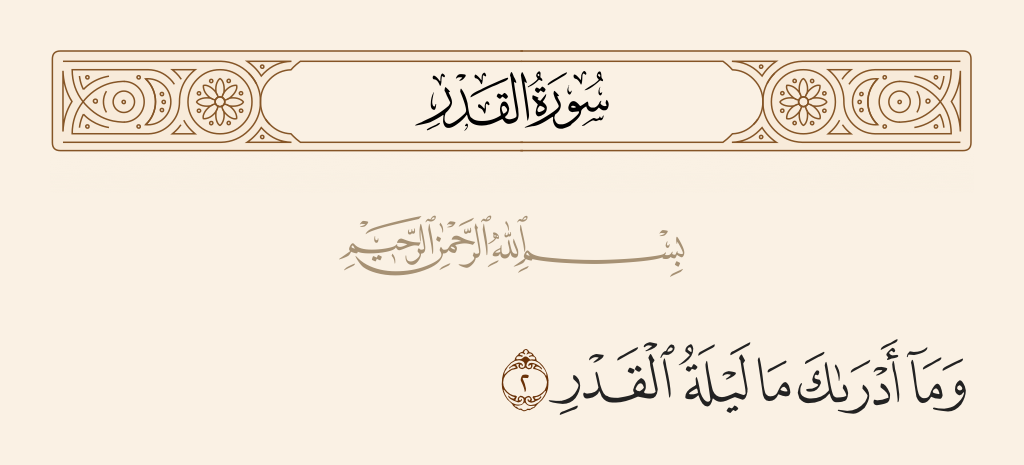 سُورَةُ القَدْرِ
بِسْمِ ٱللَّهِ ٱلرَّحْمَٰنِ ٱلرَّحِيمِ
وَمَآ أَدْرَىٰكَ مَا لَيْلَةُ ٱلْقَدْرِ ٢